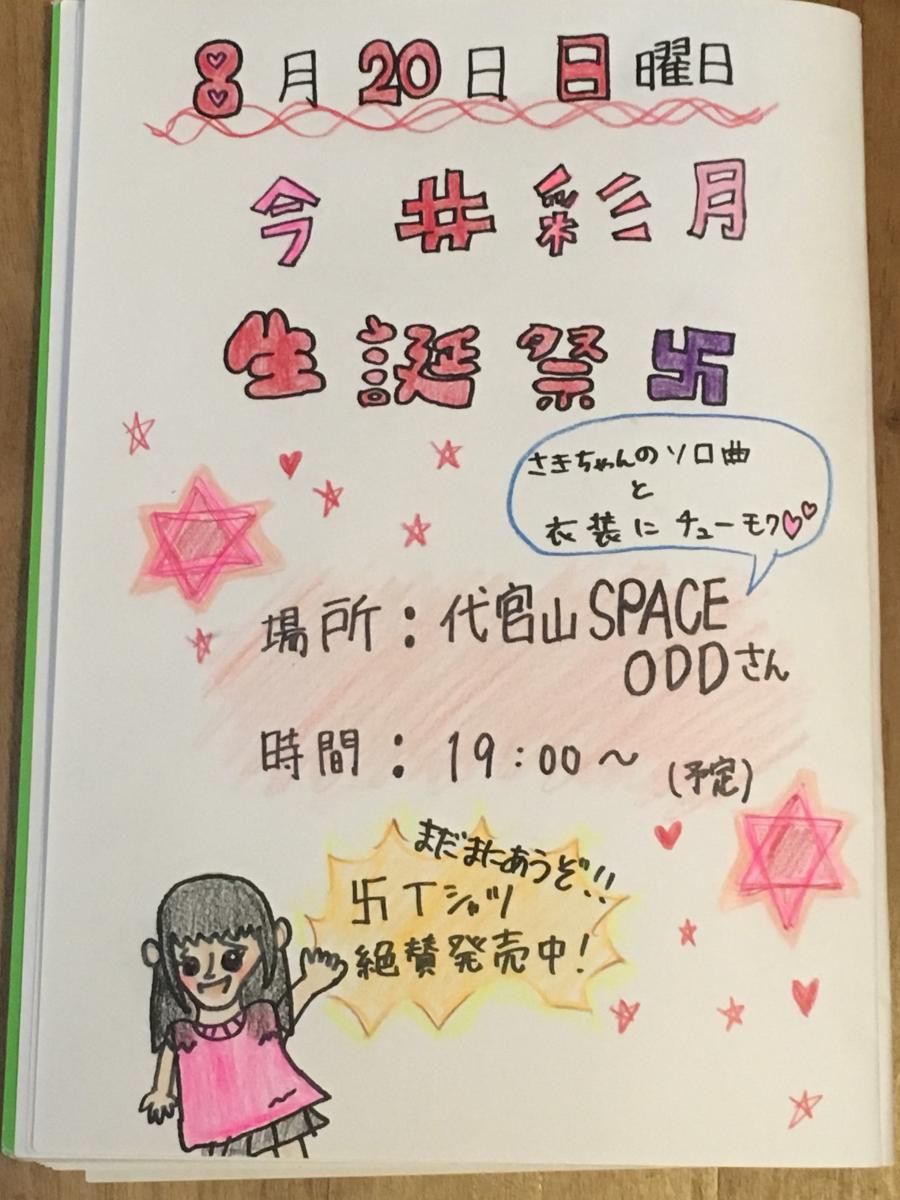 8月20日日曜日
今井彩月
生誕祭卐
さきちゃんのソロ曲
と
衣装にチューモク
場所：代官山SPACE
ODDさん
時間：19:00～
(予定)
まだまにあうぞ!!
卐Tシャツ
絶賛発売中!